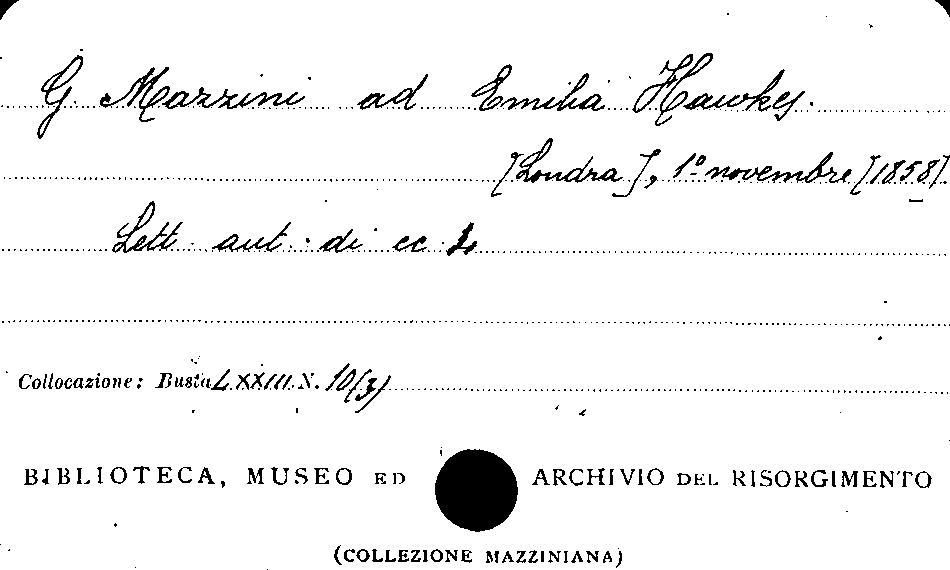 G. Mazzini ad Emilia Hawkes.
[Londra], 1º novembre [1858]
Lett. aut. di cc.
Collocazione: Busta LXXIII N. 10(3)
BIBLIOTECA, MUSEO ED ARCHIVIO DEL RISORGIMENTO
(COLLEZIONE MAZZINIANA)